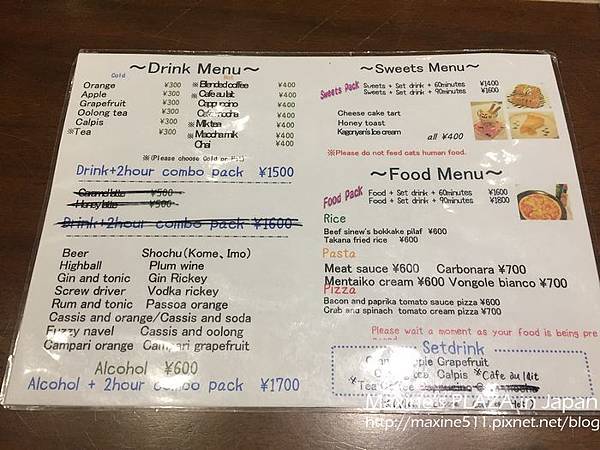 ~Drink Menu~
Cold
Orange ¥300
Apple ¥300
Grapefruit ¥300
Oolong tea ¥300
Calpis ¥300
※Tea ¥300
Hot
※Blended coffee ¥400
※Cafe au lait ¥400
Cappucino ¥400
Cafe mocha ¥400
※Milk tea ¥400
※Maccha milk ¥400
Chai ¥400
※(Please choose Cold or Hot)
Drink+2hour combo pack ¥1500
Caramel latte ¥500
Honey latte ¥500
Drink+2hour combo pack ¥1600
Beer Shochu(Kome、Imo)
Highball Plum wine
Gin and tonic Gin Rickey
Screw driver Vodka rickey
Rum and tonic Passoa orange
Cassis and orange/Cassis and soda
Fuzzy navel Cassis and oolong
Campari orange Campari grapefruit
Alcohol ¥600
Alcohol + 2hour combo pack ¥1700
~Sweets Menu~
Sweets Pack
Sweets + Set drink + 60minutes ¥1400
Sweets + Set drink + 90minutes ¥1600
Cheese cake tart
Honey toast
Kagonyan's Ice cream
all ¥400
※Please do not feed cats human food.
~Food Menu~
Food Pack
Food + Set drink + 60minutes ¥1600
Food + Set drink + 90minutes ¥1800
Rice
Beef sinew's bokkake pilaf ¥600
Takana fried rice ¥600
Pasta
Meat sauce ¥600 Carbonara ¥700
Mentaiko cream ¥600 Vongole bianco ¥700
Pizza
Bacon and paprika tomato sauce pizza ¥600
Crab and spinach tomato cream pizza ¥700
Please wait a moment as your food is being pre
Setdrink
Apple Grapefruit
Calpis ※Cafe au lait
※Tea Coffee Cappucino
Maxine's PLAZA in Japan
http://maxine511.pixnet.net/blog